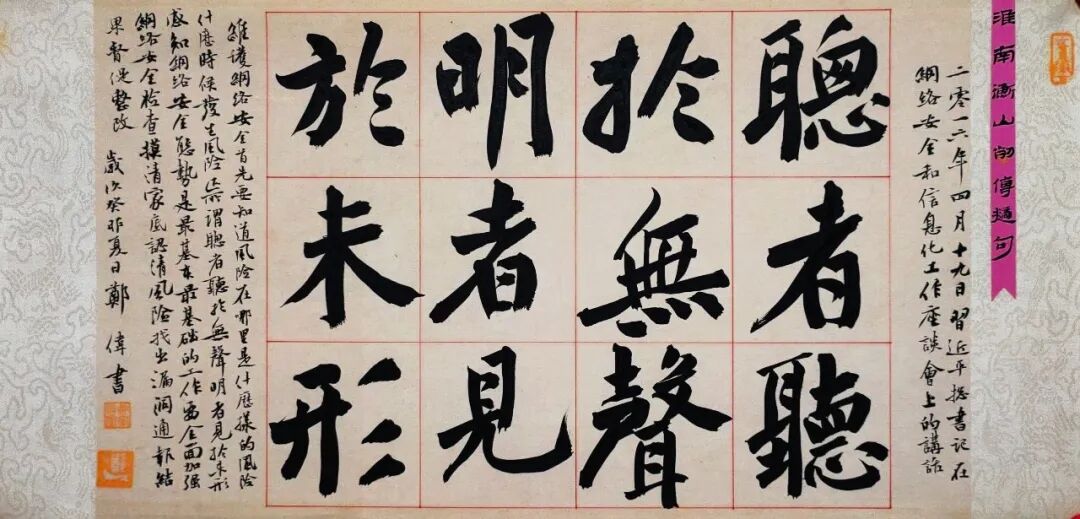 淮南衡山列傳句
二零一六年四月十九日習近平捴書記在
網絡安全和信息化工作座談會上的講話
聰者聽
扵無聲
明者見
於未形
維護網絡安全首先要知道風险在哪里是什麼樣的風险
什麼時候發生風险所謂聰者聽扵無聲明者見扵未形
感知網絡安全態勢是最基本最基礎的工作要全面加强
網絡安全檢查摸清家底認清風险找出漏洞通報結
果督促整改 歲次癸卯夏日鄭偉書